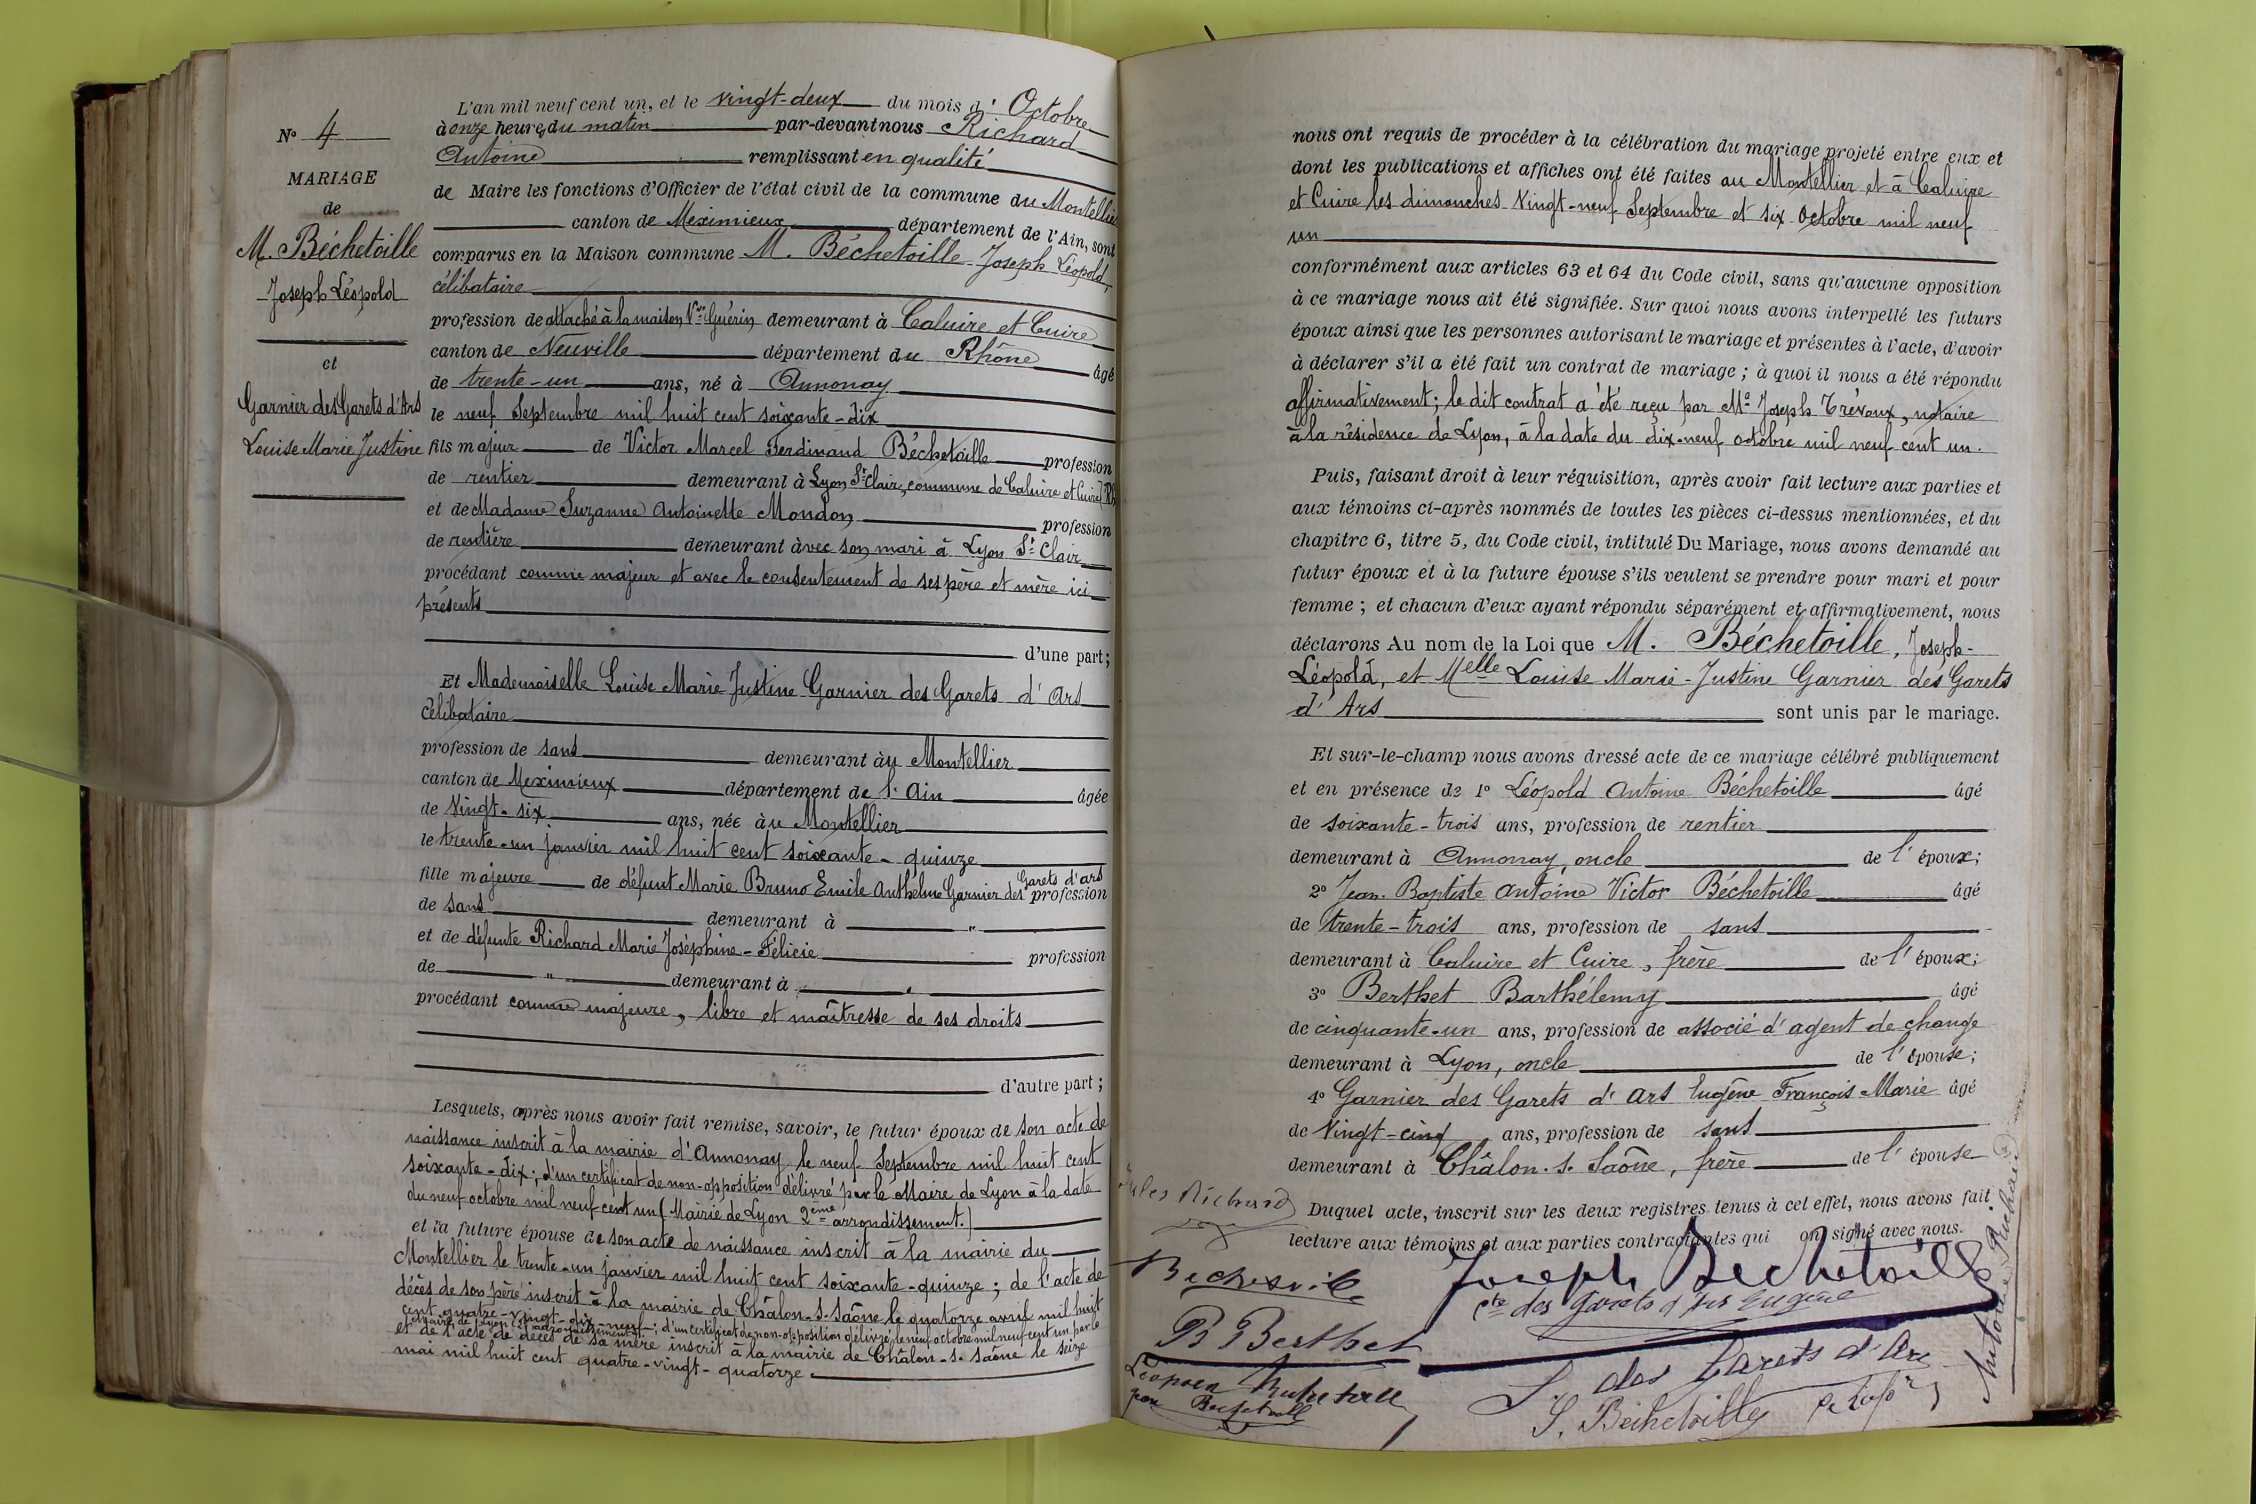 N° 4
MARIAGE
de
M. Béchetoille
Joseph Léopold
et
Garnier des Garets d'Ars
Louise Marie Justine
L'an mil neuf cent un, et le vingt-deux du mois d' Octobre
à onze heures du matin par-devant nous Richard
Antoine remplissant en qualité
de Maire les fonctions d'Officier de l'état civil de la commune du Montellier
canton de Meximieux département de l'Ain, sont
comparus en la Maison commune M. Béchetoille Joseph Léopold,
célibataire
profession de attaché à la maison Vve Guérin demeurant à Caluire et Cuire
canton de Neuville département du Rhône âgé
de trente-un ans, né à Annonay
le neuf Septembre mil huit cent soixante-dix
fils majeur de Victor Marcel Ferdinand Béchetoille profession
de rentier demeurant à Lyon St Clair, commune de Caluire et Cuire
et de Madame Suzanne Antoinette Mondon profession
de rentière demeurant avec son mari à Lyon St Clair
procédant comme majeur et avec le consentement de ses père et mère ici
présents
d'une part;
Et Mademoiselle Louise Marie Justine Garnier des Garets d'Ars
célibataire
profession de sans demeurant au Montellier
canton de Meximieux département de l'Ain âgée
de Vingt-six ans, née au Montellier
le trente-un janvier mil huit cent soixante-quinze
fille majeure de défunt Marie Bruno Emile Anthelme Garnier des Garets d'ars profession
de sans demeurant à "
et de défunte Richard Marie Joséphine-Félicie profession
de " demeurant à "
procédant comme majeure, libre et maîtresse de ses droits
d'autre part;
Lesquels, après nous avoir fait remise, savoir, le futur époux de son acte de
naissance inscrit à la mairie d'Annonay le neuf Septembre mil huit cent
soixante-dix; d'un certificat de non-opposition délivré par le Maire de Lyon à la date
du neuf octobre mil neuf cent un (Mairie de Lyon 2ème arrondissement.)
et la future épouse de son acte de naissance inscrit à la mairie du
Montellier le trente-un janvier mil huit cent soixante-quinze; de l'acte de
décès de son père inscrit à la mairie de Châlon-s-Saône le quatorze avril mil huit
cent quatre-vingt-dix-neuf; d'un certificat de non-opposition délivré le neuf octobre mil neuf cent un par le
Maire de Lyon
et de l'acte de décès de sa mère inscrit à la mairie de Châlon-s-Saône le seize
mai mil huit cent quatre-vingt-quatorze
nous ont requis de procéder à la célébration du mariage projeté entre eux et
dont les publications et affiches ont été faites au Montellier et à Caluire
et Cuire les dimanches Vingt-neuf Septembre et six Octobre mil neuf
un
conformément aux articles 63 et 64 du Code civil, sans qu'aucune opposition
à ce mariage nous ait été signifiée. Sur quoi nous avons interpellé les futurs
époux ainsi que les personnes autorisant le mariage et présentes à l'acte, d'avoir
à déclarer s'il a été fait un contrat de mariage; à quoi il nous a été répondu
affirmativement; le dit contrat a été reçu par Me Joseph Trévoux, notaire
à la résidence de Lyon, à la date du dix-neuf octobre mil neuf cent un.
Puis, faisant droit à leur réquisition, après avoir fait lecture aux parties et
aux témoins ci-après nommés de toutes les pièces ci-dessus mentionnées, et du
chapitre 6, titre 5, du Code civil, intitulé Du Mariage, nous avons demandé au
futur époux et à la future épouse s'ils veulent se prendre pour mari et pour
femme; et chacun d'eux ayant répondu séparément et affirmativement, nous
déclarons Au nom de la Loi que M. Béchetoille, Joseph-
Léopold, et Melle Louise Marie-Justine Garnier des Garets
d'Ars sont unis par le mariage.
Et sur-le-champ nous avons dressé acte de ce mariage célébré publiquement
et en présence de 1° Léopold Antoine Béchetoille âgé
de soixante-trois ans, profession de rentier
demeurant à Annonay, oncle de l'époux;
2° Jean-Baptiste Antoine Victor Béchetoille âgé
de trente-trois ans, profession de sans
demeurant à Caluire et Cuire, frère de l'époux;
3° Berthet Barthélemy âgé
de cinquante-un ans, profession de associé d'agent de change
demeurant à Lyon, oncle de l'épouse;
4° Garnier des Garets d'Ars Eugène François Marie âgé
de Vingt-cinq ans, profession de sans
demeurant à Châlon-s-Saône, frère de l'épouse
Duquel acte, inscrit sur les deux registres tenus à cet effet, nous avons fait
lecture aux témoins et aux parties contractantes qui ont signé avec nous.
Jules Richard
Joseph Bechetoille
cte des Garets d'Ars Eugène
B Berthet
L des Garets d'Ars
S. Béchetoille
Antoine Richard